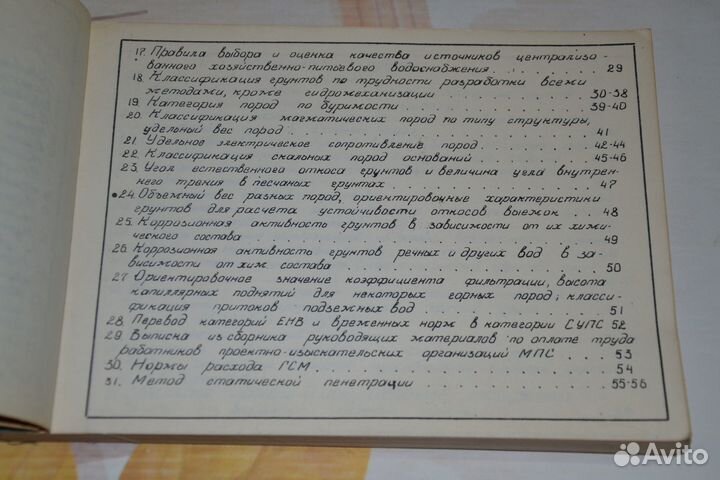 17. Правила выбора и оценка качества источников централизо-
ванного хозяйственно-питьевого водоснабжения . . . . . . . 29
18. Классификация грунтов по трудности разработки всеми
методами, кроме гидромеханизации . . . . . . . . 30-38
19. Категория пород по буримости . . . . . . . . . . 39-40
20. Классификация магматических пород по типу структуры,
удельный вес пород . . . . . . . . . . . . . . . 41
21. Удельное электрическое сопротивление пород . . . . . 42-44
22. Классификация скальных пород оснований . . . . . . 45-46
23. Угол естественного откоса грунтов и величина угла внутрен-
него трения в песчаных грунтах . . . . . . . . . . 47
24. Объемный вес разных пород, ориентировочные характеристики
грунтов для расчета устойчивости откосов выемок . . . . 48
25. Коррозионная активность грунтов в зависимости от их хими-
ческого состава . . . . . . . . . . . . . . . . 49
26. Коррозионная активность грунтов речных и других вод в за-
висимости от хим. состава . . . . . . . . . . . . 50
27. Ориентировочное значение коэффициента фильтрации, высота
капиллярных поднятий для некоторых горных пород; класси-
фикация притоков подземных вод . . . . . . . . . . 51
28. Перевод категорий ЕНВ и временных норм в категории СУПС 52
29. Выписка из сборника руководящих материалов по оплате труда
работников проектно-изыскательских организаций МПС . . . 53
30. Нормы расхода ГСМ . . . . . . . . . . . . . . . 54
31. Метод статической пенетрации . . . . . . . . . . 55-56
Avito